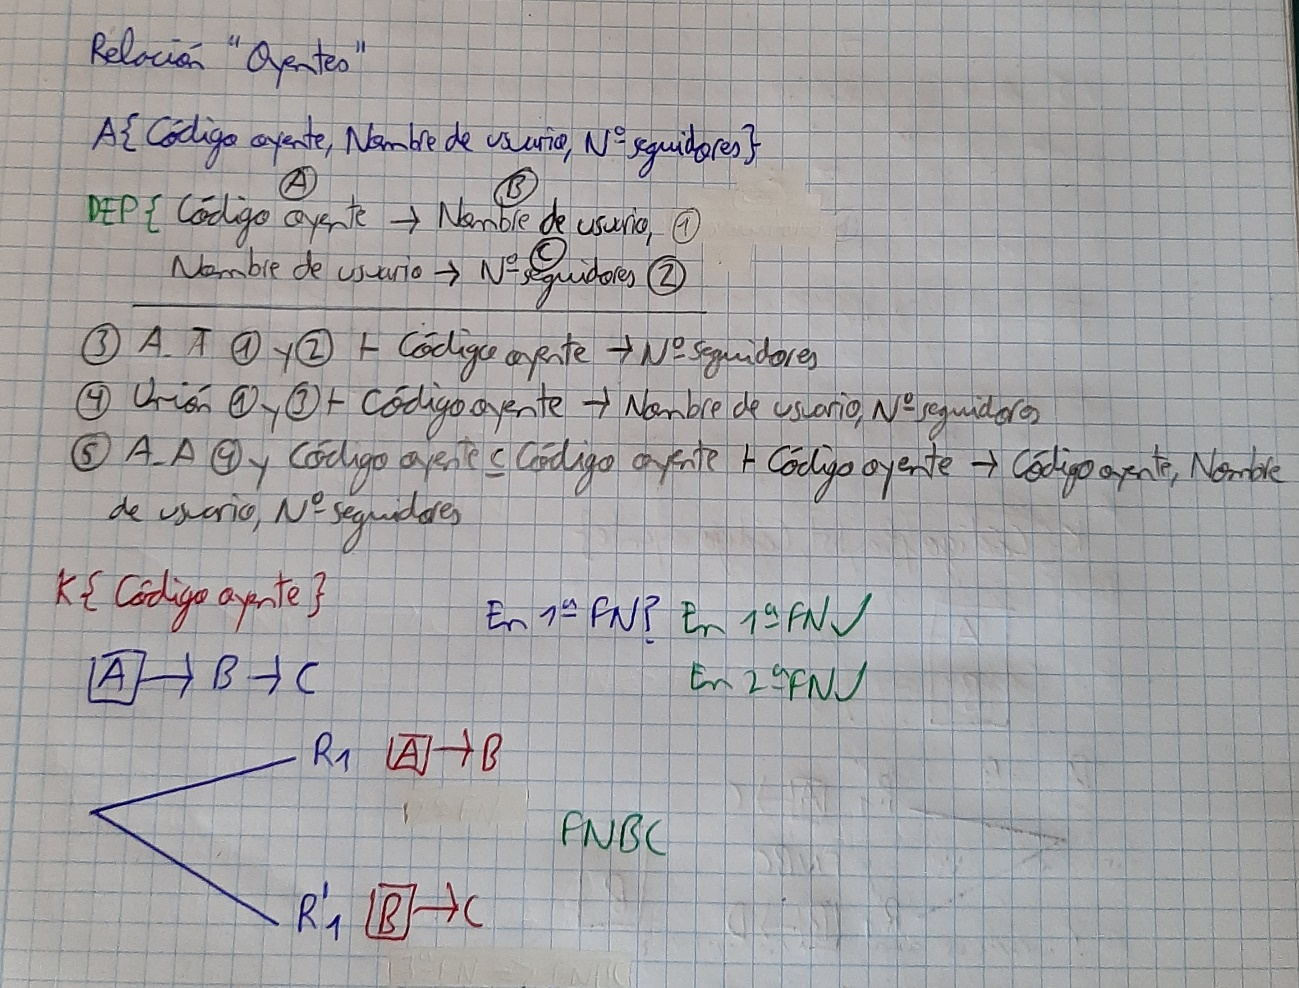 Relación "Oyentes"
A{ Código oyente, Nombre de usuario, Nº seguidores}
A B
DEP{ Código oyente → Nombre de usuario, 1
C
Nombre de usuario → Nº seguidores 2
3 A.T 1 y 2 ⊢ Código oyente → Nº seguidores
4 Unión 1 y 3 ⊢ Código oyente → Nombre de usuario, Nº seguidores
5 A.A 4 y Código oyente ⊆ Código oyente ⊢ Código oyente → Código oyente, Nombre
de usuario, Nº seguidores
K{ Código oyente }
En 1ª FN? En 1ª FN✓
A → B → C
En 2ª FN✓
R1 A → B
FNBC
R'1 B → C